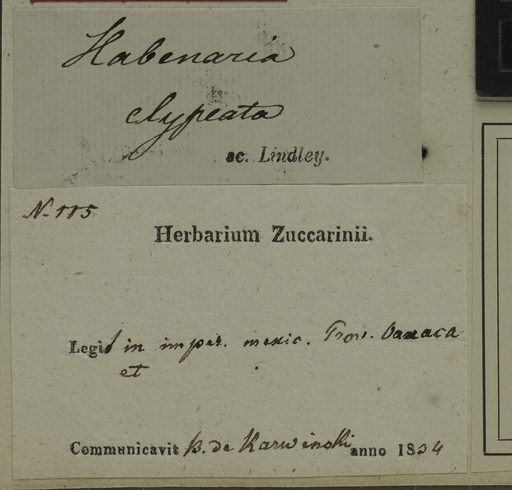 Habenaria
clypeata
sc. Lindley.
N. 115
Herbarium Zuccarinii.
Legit in imper. mexic. Prov. Oaxaca
et
Communicavit B. de Karwinski anno 1834